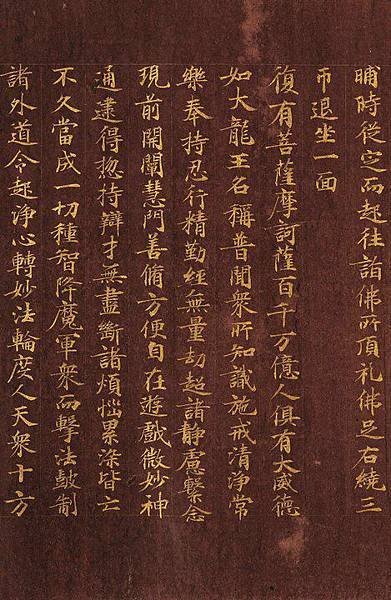 晡時從定而起往詣佛所頂礼佛足右繞三
帀退坐一面
復有菩薩摩訶薩百千万億人俱有大威德
如大龍王名稱普聞衆所知識施戒清淨常
樂奉持忍行精勤經無量劫超諸靜慮繫念
現前開闡慧門善脩方便自在遊戲微妙神
通逮得惣持辯才無盡斷諸煩惱累染皆亡
不久當成一切種智降魔軍衆而擊法皷制
諸外道令起淨心轉妙法輪度人天衆十方